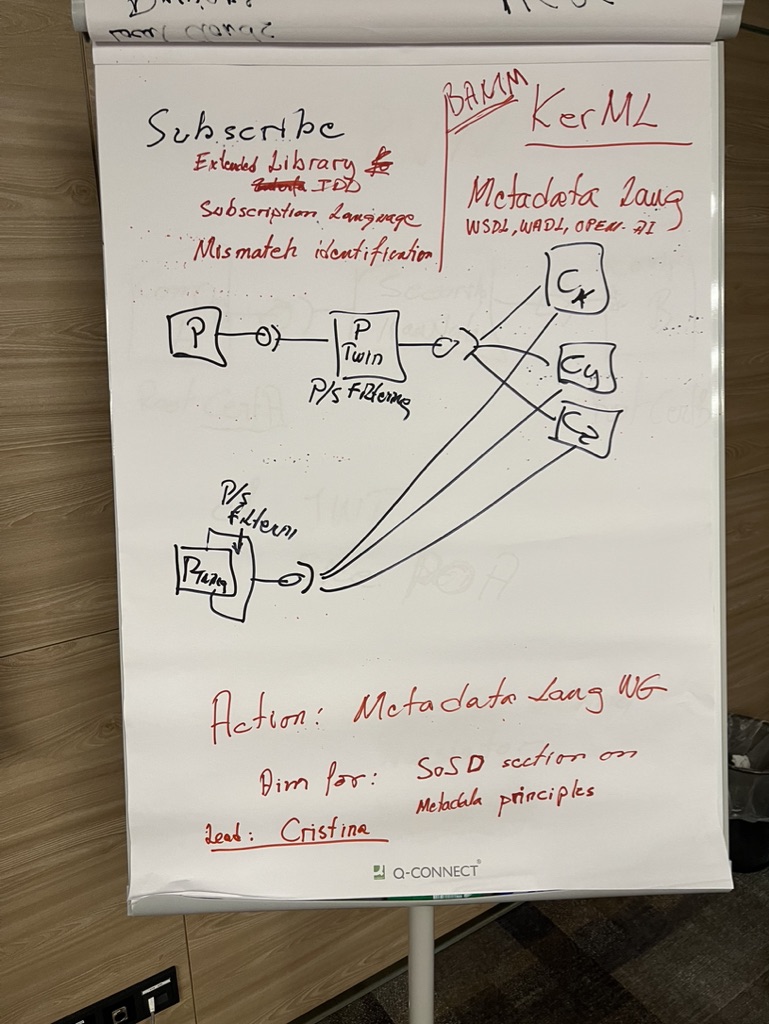 Subscribe
Extended Library
IDD
Subscription Language
Mismatch identification
BAMM
KerML
Metadata Lang
WSDL, WADL, OPEN-AI
P
P
Twin
P/S Filtering
Cx
Cy
Cz
P/S
Action: Metadata Lang WG
Aim for: SoSD section on
Metadata principles
Lead: Cristina
Q-CONNECT